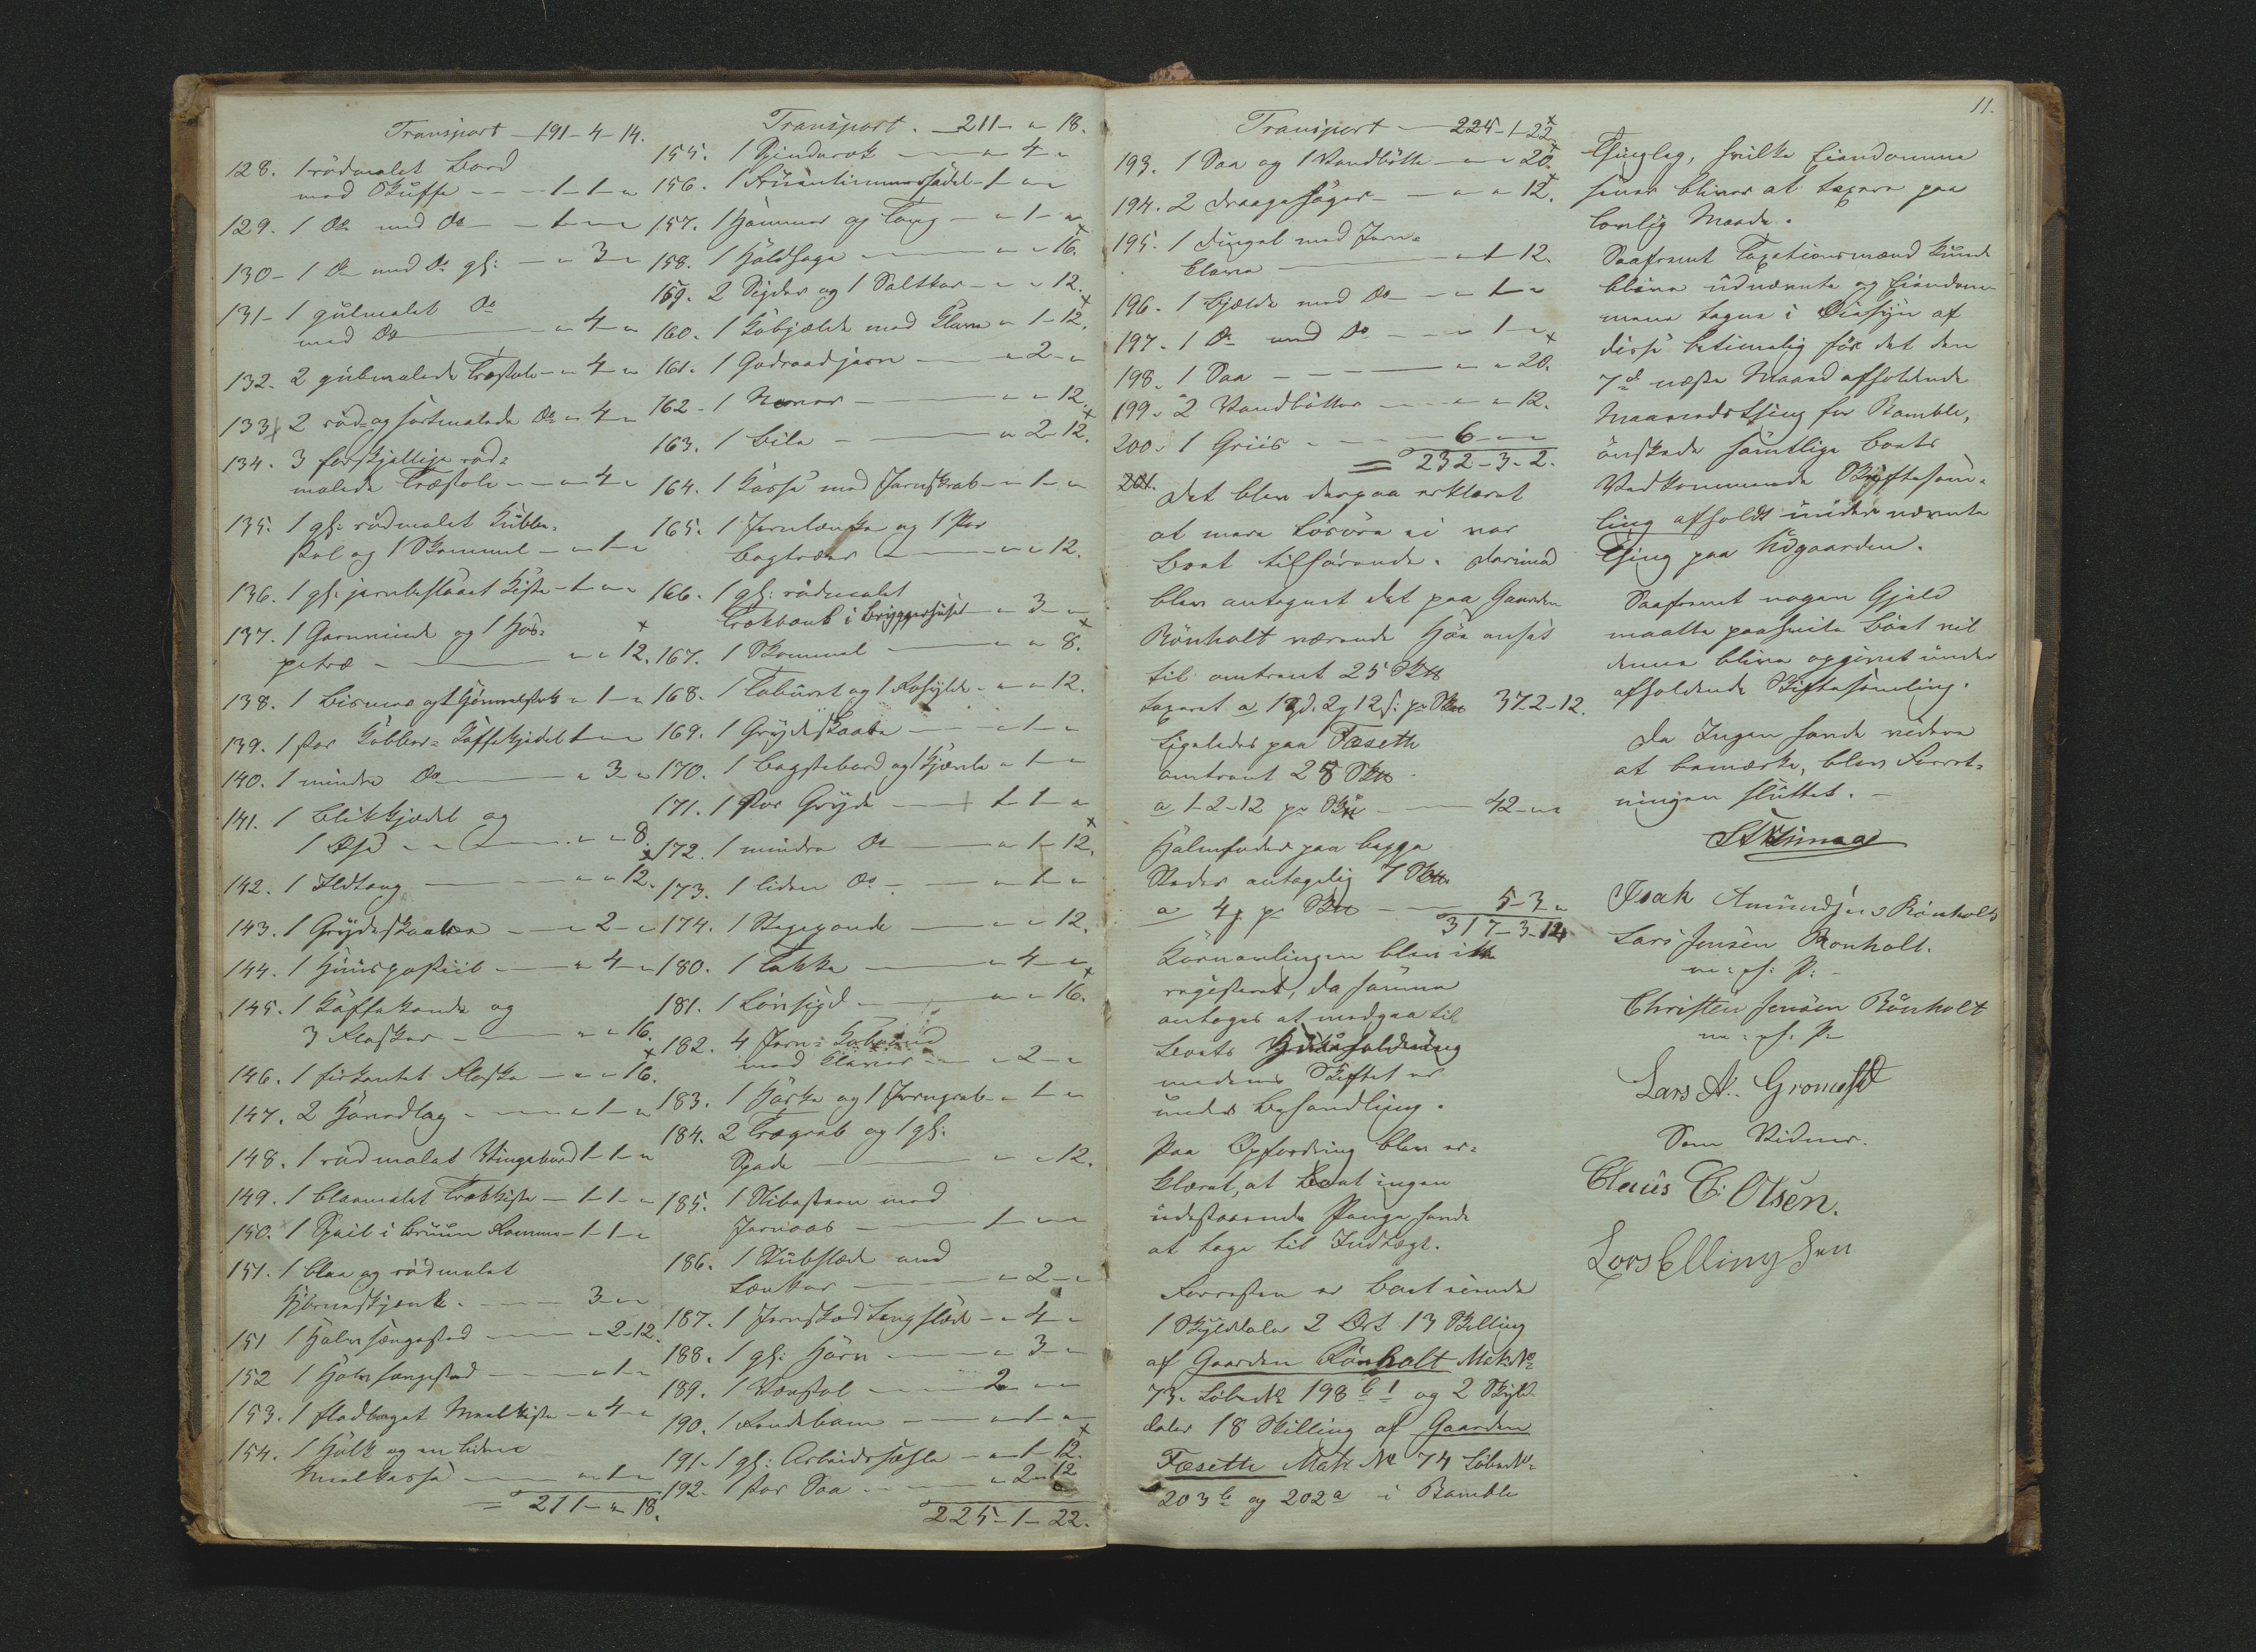 Transport - 191 - 4 - 14.
128. 1 rödmalet Bord
med Skuffe - - - 1 - 1 - "
129. 1 Do med Do - - 1 - " - "
130 - 1 Do med Do gl: - " 3 - "
131 - 1 gulmalet Do
med Do - " 4 - "
132. 2 gulmalede Træstole - " 4 - "
133 2 röd- og sortmalede Do " 4 - "
134. 3 forskjellige röd=
malede Træstole - - " 4 - "
135. 1 gl: rödmalet Kubbe=
stol og 1 Skammel - " 1 - "
136. 1 gl: jernbeslaaet Kiste - 1 - " - "
137. 1 Garnvinde og 1 Hos=
petræ - " - " 12.
138. 1 Bismer og 1 " 1 - "
139. 1 stor Kobber= Kaffekjedel 1 - " - "
140. 1 mindre Do - " 3 - "
141. 1 Blikkjedel og
1 - " - " 8.
142. 1 Ildtang - " - " 12.
143. 1 Grydeskaale - " 2 - "
144. 1 - " 4 - "
145. 1 Kaffekande og
3 Flasker - " - " 16.
146. 1 firkantet Flaske - " - " 16.
147. 2 - " 1 - "
148. 1 rödmalet Vingebord 1 - 1 - "
149. 1 blaamalet Trækkiste - 1 - 1 - "
150. 1 Speil i bruun Ramme - 1 - 1 - "
151. 1 blaa og rödmalet
Hjörneskjenk - 3 - " - "
151 1 Halvsængested - " - 2 - 12.
152 1 Halvsængested - " 1 - "
153. 1 fladlaget Meelkiste - " 4 - "
154. 1 Holk og en liden
Meelkasse - " 1 - "
= 211 - " - 18.
Transport. - 211 - " - 18.
155. 1 Spinderok - " 4 - "
156. 1 Fruentimmersadel - 1 - " - "
157. 1 Hammer og Tang - " 1 - "
158. 1 Holdsage - " - " 16.
159. 2 Sigder og 1 Saltkar - " - " 12.
160. 1 Kobjelde med Klave " 1 - 12.
161. 1 Goderaadjern - " 2 - "
162 - 1 Naver - " - " 12.
163. 1 Bile - " 2 - 12.
164. 1 Kasse med Jernskrab - " 1 - "
165. 1 Jernlænke og 1 Par
Bogtræer - " - " 12.
166. 1 gl: rödmalet
Trækbænk i Bryggerhuset - " 3 - "
167. 1 Skammel - " - " 8.
168. 1 Taburet og 1 - " - " 12.
169. 1 Grydeskaale - " 1 - "
170. 1 Bagstebord og 1 Kjævle " 1 - "
171. 1 stor Gryde - 1 - 1 - "
172. 1 mindre Do - " 1 - 12.
173. 1 liden Do - " 1 - "
174. 1 Stegepande - " - " 12.
180. 1 Takke - " 4 - "
181. 1 Lövsigd - " - " 16.
182. 4 Jern= Kobaand
med Klaver - " 2 - "
183. 1 Harke og 1 Jerngreb - " 1 - "
184. 2 Trægreb og 1 gl:
Spade - " - " 12.
185. 1 Slibesteen med
Jernaas - 1 - " - "
186. 1 Stubslæde med
Lænker - " 2 - "
187. 1 Jernskod Langslæde - " 4 - "
188. 1 gl: Harv - " 3 - "
189. 1 Vævstol - 2 - " - "
190. 1 - " 1 - "
191 - 1 gl: Arbeidssæle - " 1 - 12.
192. 1 stor Saa - " 2 - 12
225 - 1 - 22.
Transport - 225 - 1 - 22.
193. 1 Saa og 1 Vandbötte - " - " 20.
194. 2 Draagehöger - " - " 12.
195. 1 Dingel med Jern=
klave - " 1 - 12.
196. 1 Bjelde med Do - " 1 - "
197 - 1 Do med Do - " 1 - "
198. 1 Saa - " - " 20.
199. 2 Vandbötter - " - " 12.
200. 1 Griis - 6 - " - "
= 232 - 3 - 2.
201. Det blev derpaa erklæret
at mere Lösöre ei var
Boet tilhörende. Derimod
blev antegnet det paa Gaarden
Rönholt værende Höe ansat
til omtrent 25 Sk
taxeret a 1 Spd. 2 12 s: pr Sk 37 - 2 - 12.
Ligeledes paa Fæseth
omtrent 28 Sk
a 1 - 2 - 12 pr Sk - 42 - " - "
Halmfoder paa begge
Steder antagelig 7 Sk
a 4 pr Sk - 5 - 3 - "
317 - 3 - 14
Kornavlingen blev ikke
registeret, da samme
antages at medgaa til
Boets Huusholdning
medens Skiftet er
under Behandling.
Paa Opfordring blev er=
klæret, at Boet ingen
udestaaende Penge havde
at tage til Indtægt.
Forresten er Boet eiende
1 Skylddaler 2 Ort 13 Skilling
af Gaarden Rönholt Mat: No
73. Löbe No 198 b 1 og 2 Skyld
daler 18 Skilling af Gaarden
Fæseth Mat: No 74 Löbe No
203 b og 202 a i Bamble
11.
Thinglag, hvilke Eiendomme
senere bliver at taxere paa
lovlig Maade.
Saafremt Taxationsmænd kunde
blive udnævnte og Eiendom-
mene tagne i Öiesyn af
disse betimelig för det den
7de næste Maaned afholdende
Maanedsthing for Bamble,
önskede samtlige Boets
Vedkommende Skiftesam=
ling afholdt under nævnte
Thing paa Udgaarden.
Saafremt nogen Gjæld
maatte paahvile Boet vil
denne blive opgivet under
afholdende Skiftesamling.
Da Ingen havde videre
at bemærke, blev Forret=
ningen sluttet. -
Isak Amundsen Rönholt
Lars Jensen Rönholt.
m. p: P: -
Christen Jensen Rönholt
m. p. P.
Lars A. Gromstad
Som Vidner.
Claus C. Olsen.
Lars Ellingsen